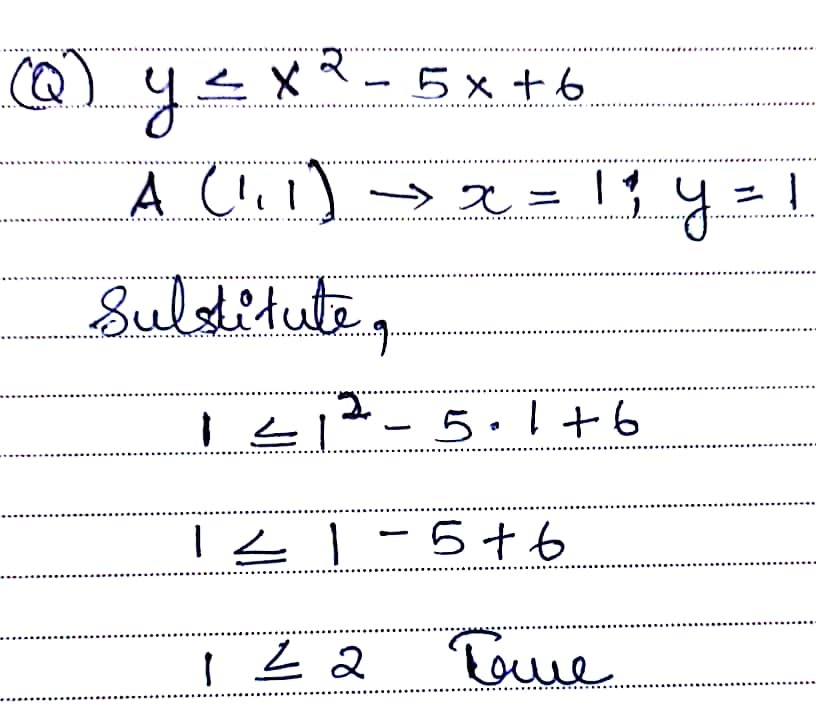 (Q) y ≤ x² - 5x + 6
A (1, 1) → x = 1 ; y = 1
Substitute,
1 ≤ 1² - 5 · 1 + 6
1 ≤ 1 - 5 + 6
1 ≤ 2 True